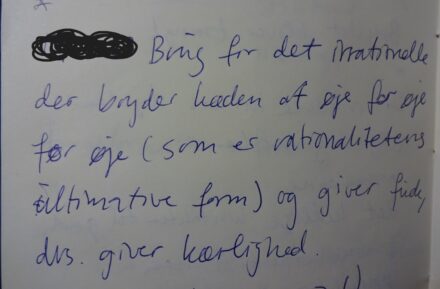 Brug for det irrationelle
der bryder kæden af øje for øje
for øje (som er rationalitetens
ultimative form) og giver
dvs. giver kærlighed.